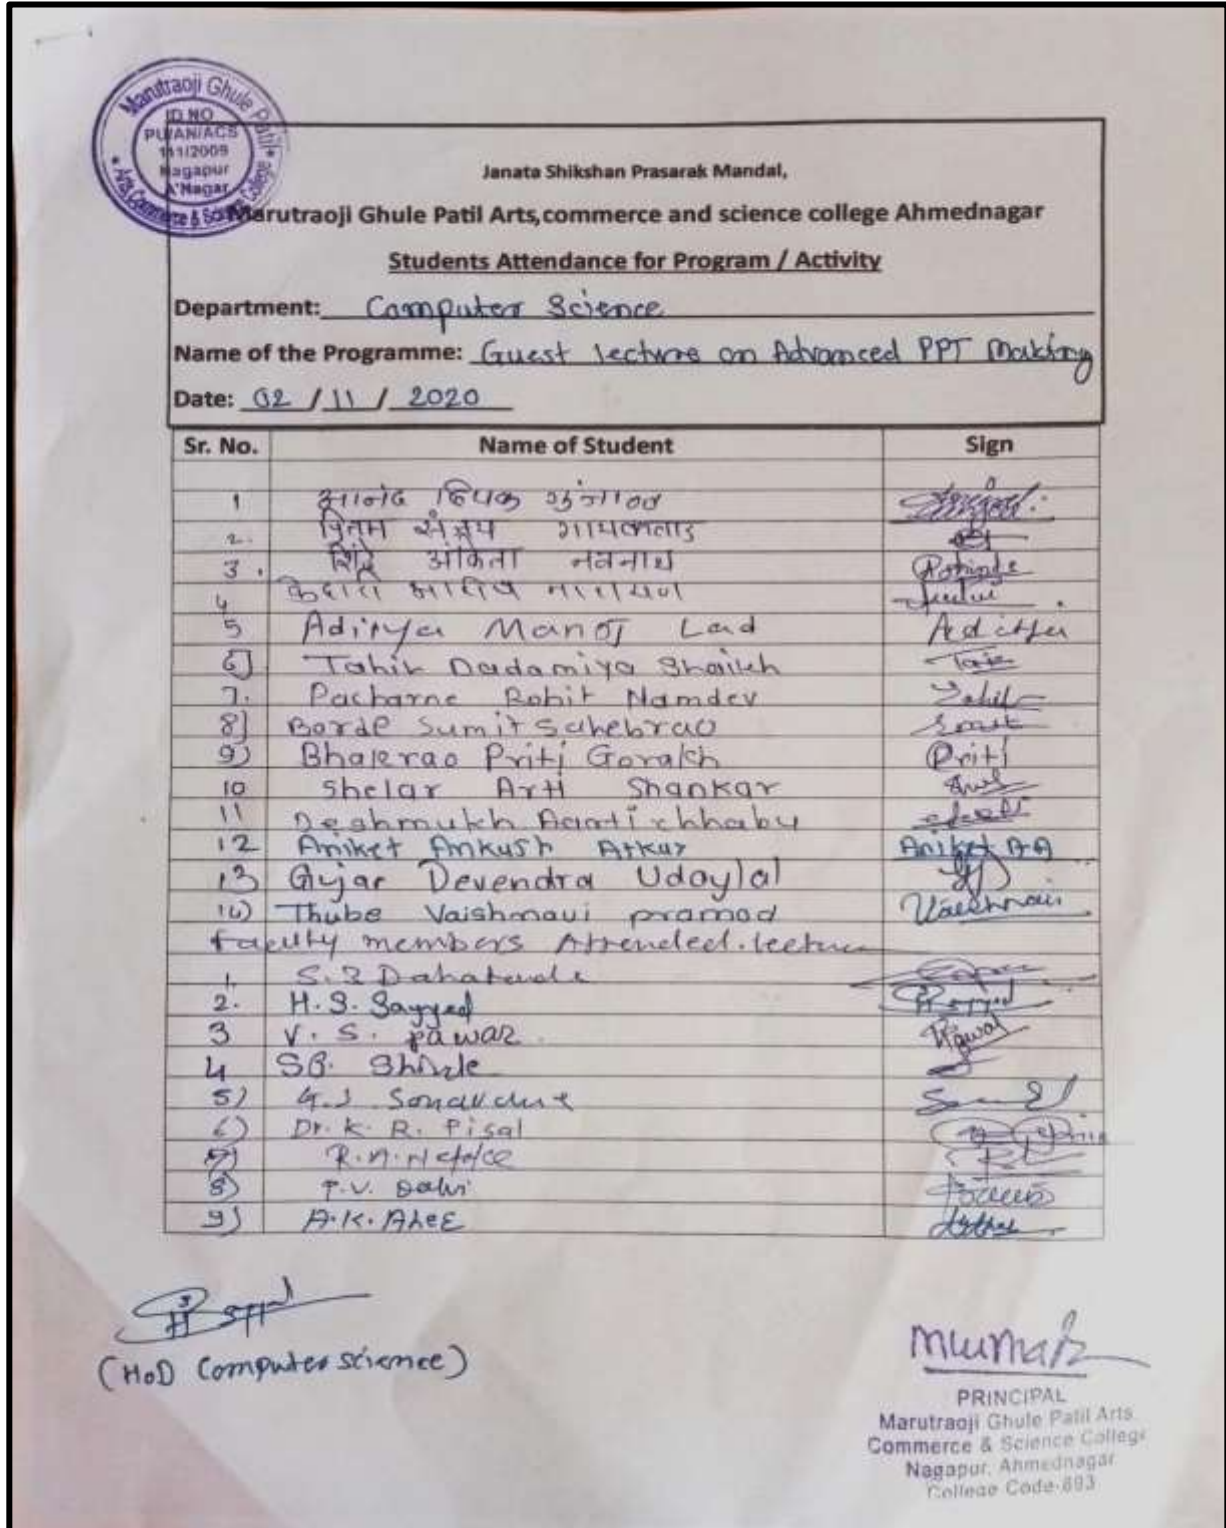 Marutraoji Ghule Patil
Arts, Commerce & Science College
ID NO
PU/AN/ACS
111/2009
Nagapur
A'Nagar
Janata Shikshan Prasarak Mandal,
Marutraoji Ghule Patil Arts,commerce and science college Ahmednagar
Students Attendance for Program / Activity
Department: Computer Science
Name of the Programme: Guest lecture on Advanced PPT Making
Date: 02 / 11 / 2020
Sr. No. Name of Student Sign
1 आनंद दिपक गुंजाळ
2. संजय गायकवाड
3. शिंदे अंकिता नवनाथ
4 नारायण
5 Aditya Manoj Lad Aditya
6] Tahir Dadamiya Shaikh
7. Pacharne Rohit Namdev
8] Borde Sumit Sahebrao
9) Bhalerao Priti Gorakh Priti
10 Shelar Arti Shankar
11 Deshmukh Aarti chhabu
12 Aniket Ankush Arkar Aniket A-A
13 Gujar Devendra Udaylal
14) Thube Vaishnavi pramod Vaishnavi
Faculty members Attended lecture
1. S.S Dahatonde
2. H.S. Sayyed
3 V. S. pawar Pawar
4 SB. Shinde
5) G.J Sonavane
6) Dr. K. R. Pisal
7) R.N.
8) P.V. Dalvi
9) A.K. Aher
(HoD Computer science)
PRINCIPAL
Marutraoji Ghule Patil Arts
Commerce & Science College
Nagapur, Ahmednagar
College Code-693